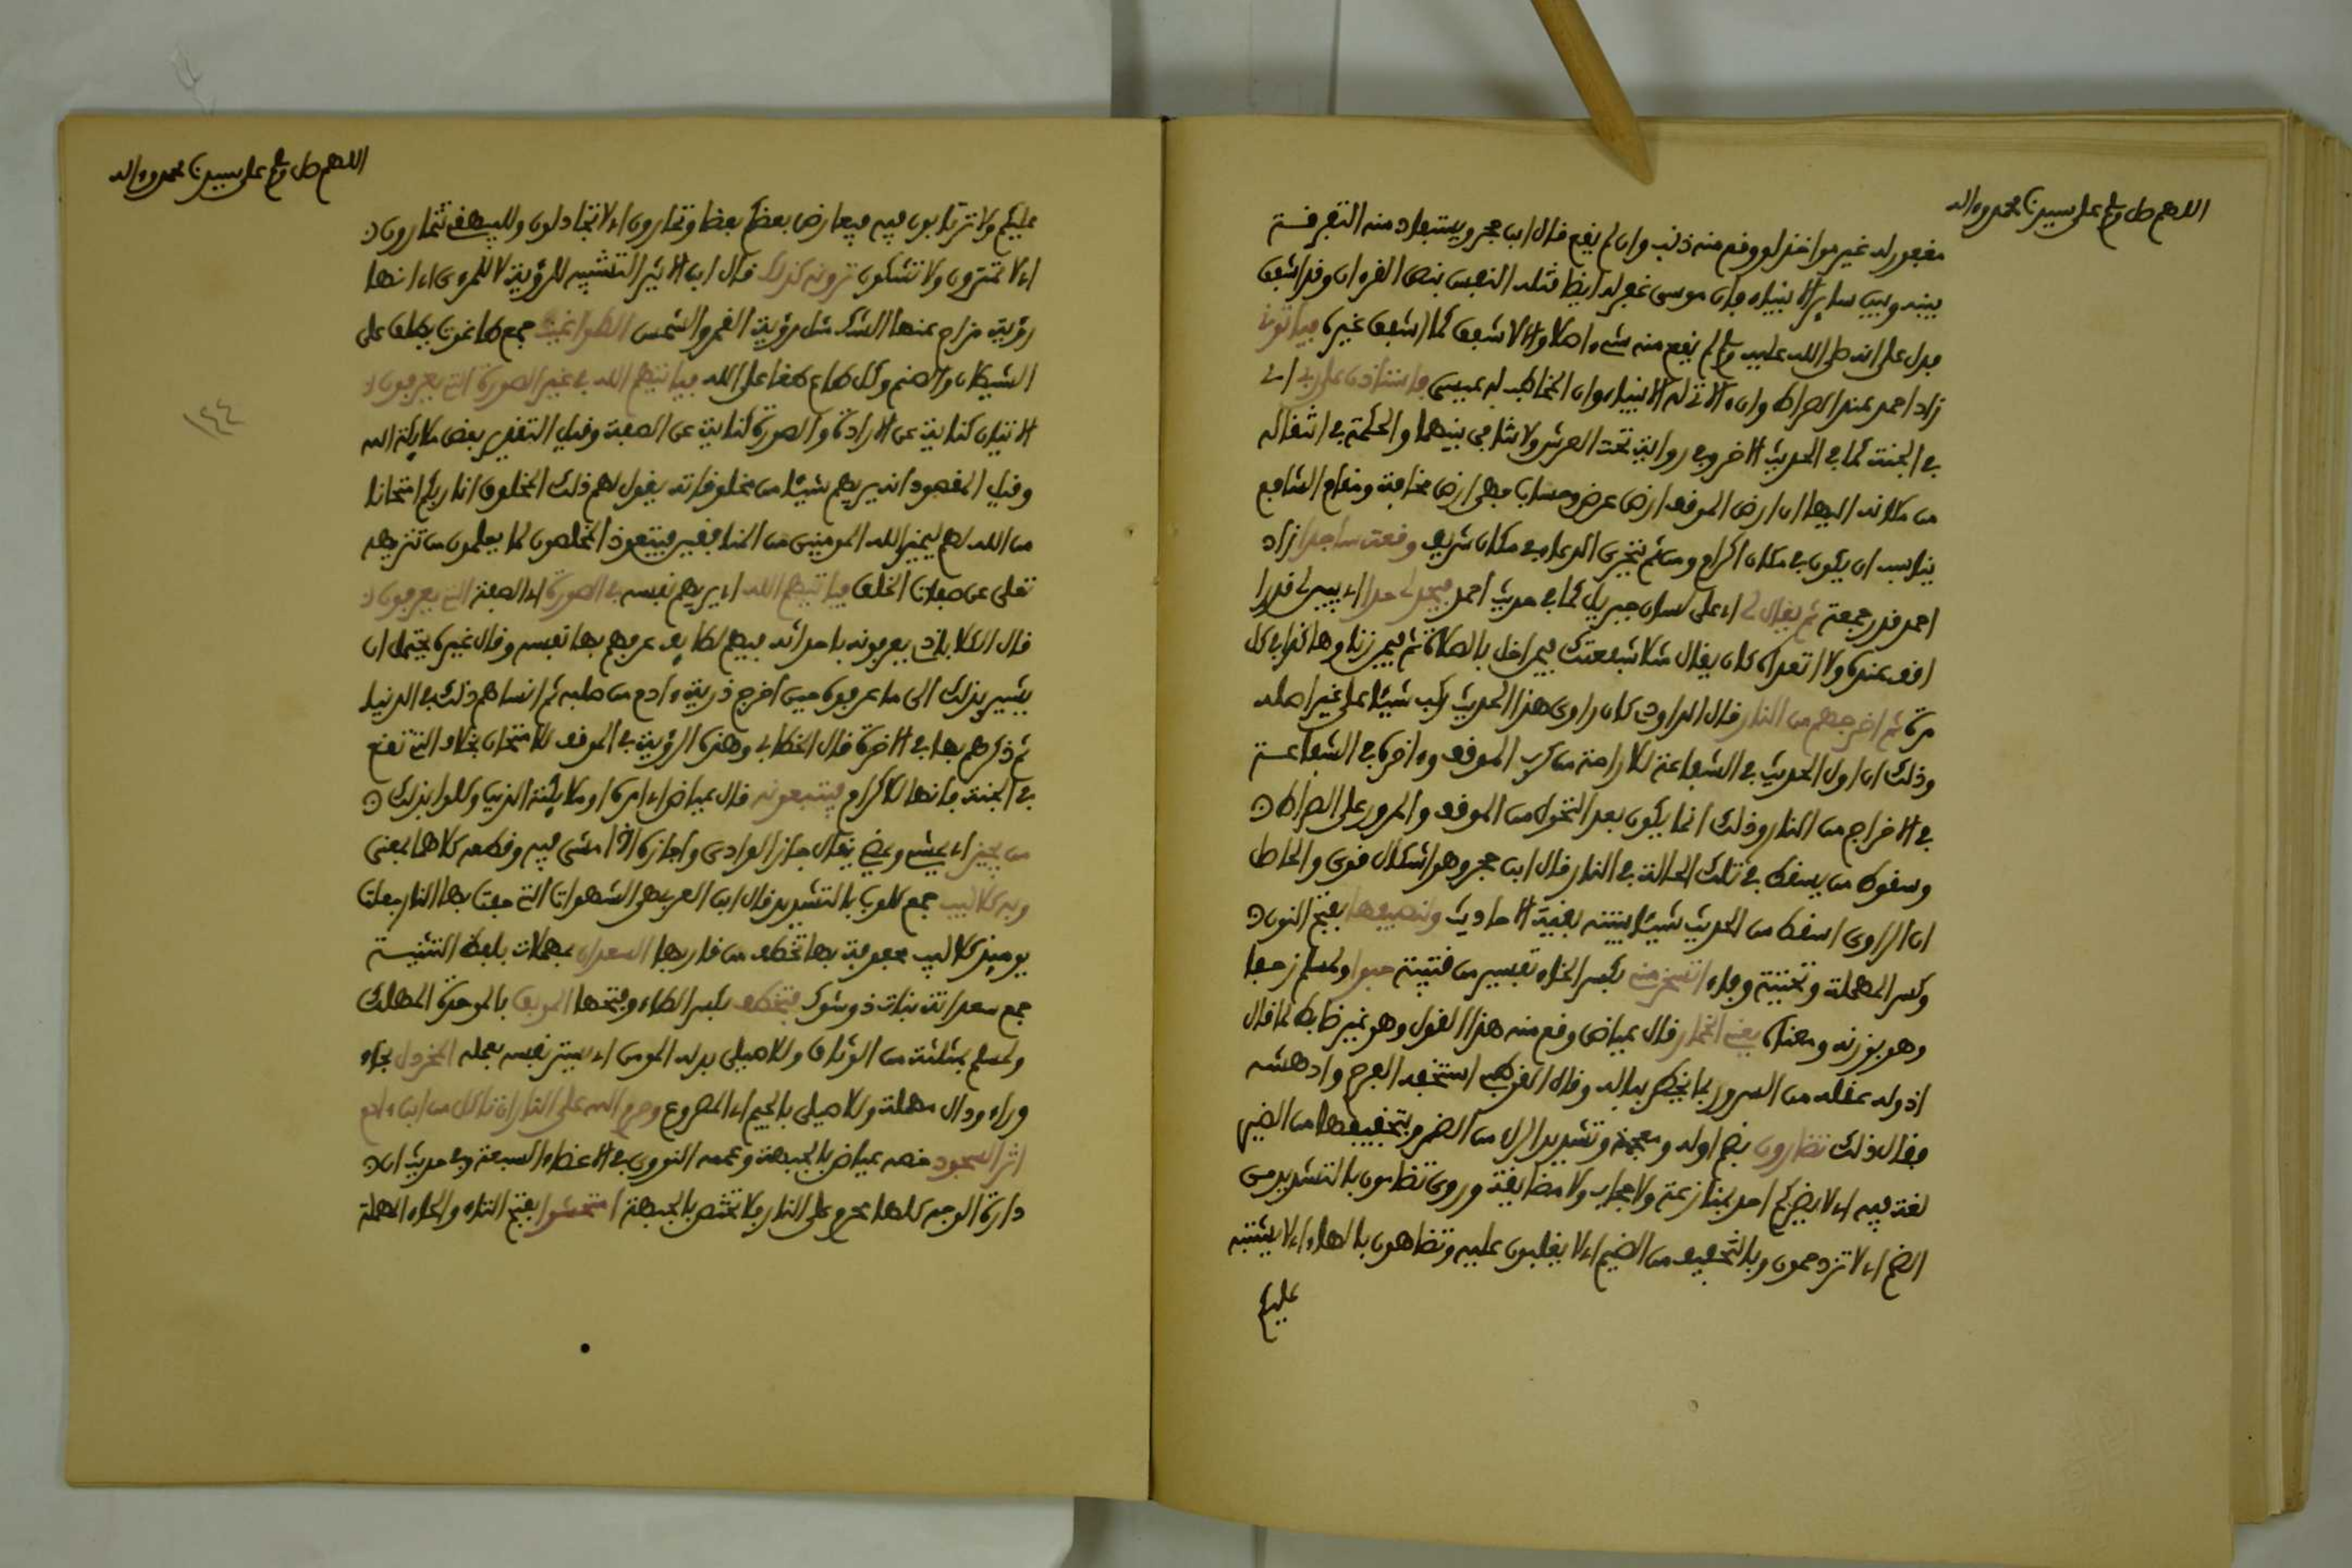 اللهم صل وسلم على سيدنا محمد وءاله
مغفور له غير مواخذ لو وقع منه ذنب وان لم يقع قال ابن حجر ويستفاد منه التفرقة
بينه وبين ساير الانبياء فان موسى غفر له ايضا قتله النفس بنص القرءان وقد اشفق
فدل على انه صلى الله عليه وسلم لم يقع منه شيء اصلا والا لاشفق كما اشفق غيره فياتونى
زاد احمد عند الصراط وان الاتى له الانبياء وان المخاطب له عيسى فاستاذن على ربى اى
فى الجنة كما فى الحديث الاخر وفى رواية تحت العرش ولا تنافى بينهما والحكمة فى انتقاله
من مكانه اليها ان ارض الموقف ارض عرض وحساب فهى ارض مخافة ومقام الشافع
يناسب ان يكون فى مكان اكرام ومن ثم يتحرى الدعاء فى مكان شريف وقعت ساجدا زاد
احمد قدر جمعة ثم يقال لى اى على لسان جبريل كما فى حديث احمد فيحد لى حدا اى يبين لى قدرا
اقف عنده ولا اتعداه كان يقال مثلا شفعتك فيمن اخل بالصلاة ثم فيمن زنا وهكذا فى كل
مرة ثم اخرجهم من النار قال الداودى كان راوى هذا الحديث ركب شيئا على غير اصله
وذلك ان اول الحديث فى الشفاعة للاراحة من كرب الموقف وءاخره فى الشفاعة
فى الاخراج من النار وذلك انما يكون بعد التحول من الموقف والمرور على الصراط
وسقوط من يسقط فى تلك الحالة فى النار قال ابن حجر وهو اشكال قوى والحاصل
ان الراوى اسقط من الحديث شيئا بينته بقية الاحاديث ولنصيفها بفتح النون
وكسر المهملة وتحتية وفاء اتسخر منى بكسر الخاء تفسير من قتيبة حبوا ولمسلم زحفا
وهو بوزنه ومعناه يعنى الخمار قال عياض وقع منه هذا القول وهو غير ضابط لما قال
اذ وله عقله من السرور بما يخطر بباله وقال القرطبى استخفه الفرح وادهشه
فقال ذلك تضارون بضم اوله ومعجمة وتشديد الراء من الضر وبتخفيفها من الضير
لغة فيه اى لا يضركم احد بمنازعة ولا حجاب ولا مضايقة وروى تضامون بالتشديد من
الضم اى لا تزدحمون وبالتخفيف من الضيم اى لا يغلبون عليه وتضاهون بالهاء اى لا يشتبه
عليكم
اللهم صل وسلم على سيدنا محمد وءاله
عليكم ولا ترتابون فيه فيعارض بعضكم بعضا وتمارون اى لا تجادلون وللبيهقى تتمارون
اى لا تمترون ولا تشكون ترونه كذلك قال ابن الاثير التشبيه للرؤية لا للمرءى اى انها
رؤية مزاح عنها الشك مثل رؤية القمر والشمس الطواغيت جمع طاغوت يطلق على
الشيطان والصنم وكل طاغ طغا على الله فياتيهم الله فى غير الصورة التى يعرفون
الاتيان كناية عن الارادة والصورة كناية عن الصفة وقيل التقدير بعض ملايكة الله
وقيل المقصود انه يريهم شيئا من مخلوقاته يقول لهم ذلك المخلوق انا ربكم امتحانا
من الله لهم ليميز الله المومنين من المنافقين فيتعوذ المخلصون لما يعلمون من تنزيهه
تعلى عن صفات الخلق فياتيهم الله اى يريهم نفسه فى الصورة اى الصفة التى يعرفون
قال الكلاباذى يعرفونه باحداثه فيهم لطايف عرفهم بها نفسه وقال غيره يحتمل ان
يشير بذلك الى ما عرفوه حين اخرج ذرية ءادم من صلبه ثم انساهم ذلك فى الدنيا
ثم ذكرهم بها فى الاخرة قال الخطابى وهذه الرؤية فى الموقف للامتحان بخلاف التى تقع
فى الجنة فانها للاكرام فيتبعونه قال عياض اى امره او ملايكته الذين وكلوا بذلك
من يجيز اى يمشى ويمضى يقال جاز الوادى واجازه اذا مشى فيه وقطعه كلاهما بمعنى
وبه كلاليب جمع كلوب بالتشديد قال ابن العربى هى الشهوات التى حفت بها النار جعلت
يوميذ كلاليب محفوفة بها تخطف من قاربها السعدان بمهملات بلفظ التثنية
جمع سعدانة نبات ذو شوك فتخطف بكسر الطاء وفتحها الموبق بالموحدة المهلك
ولمسلم بمثلثة من الوثاق وللاصيلى بدله المومن اى يستر نفسه بعمله المخردل بخاء
وراء ودال مهملة وللاصيلى بالجيم اى المصروع وحرم الله على النار ان تاكل من ابن ءادم
اثر السجود خصه عياض بالجبهة وعممه النووى فى الاعضاء السبعة وفى حديث ان
دارة الوجه كلها محرم على النار فلا تختص بالجبهة امتحشوا بفتح التاء والحاء المهملة
١٤٤